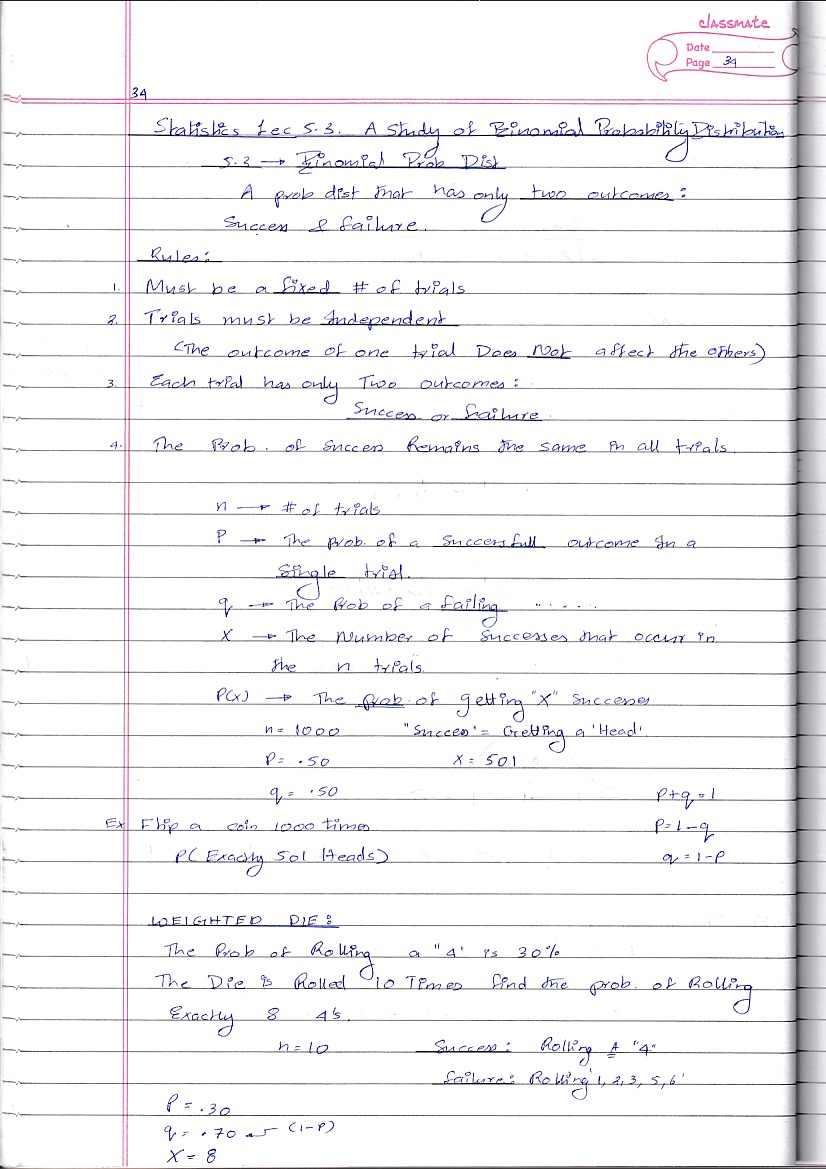 classmate
Date
Page 34
34
Statistics Lec 5.3. A Study of Binomial Probability Distribution
5.3 → Binomial Prob Dist
A prob dist that has only two outcomes:
Success & failure.
Rules:
1. Must be a fixed # of trials
2. Trials must be Independent
(The outcome of one trial Does Not affect the others)
3. Each trial has only Two outcomes:
Success or failure.
4. The Prob. of success Remains the same in all trials.
n → # of trials
P → The prob. of a Successfull outcome In a
single trial.
q → The Prob of a failing " . . . . .
X → The Number of successes that occur in
the n trials.
P(x) → The prob of getting "X" Successes
n = 1000 "Success" = Getting a 'Head'.
P = .50 X = 501
q = .50 P+q=1
Ex Flip a coin 1000 times P=1-q
P( Exactly 501 Heads) q=1-P
WEIGHTED DIE:
The Prob of Rolling a "4" is 30%
The Die is Rolled 10 Times find the prob. of Rolling
Exactly 8 4's.
n=10 Success: Rolling A "4"
failure: Rolling 1, 2, 3, 5, 6'
P = .30
q = .70 (1-P)
X = 8